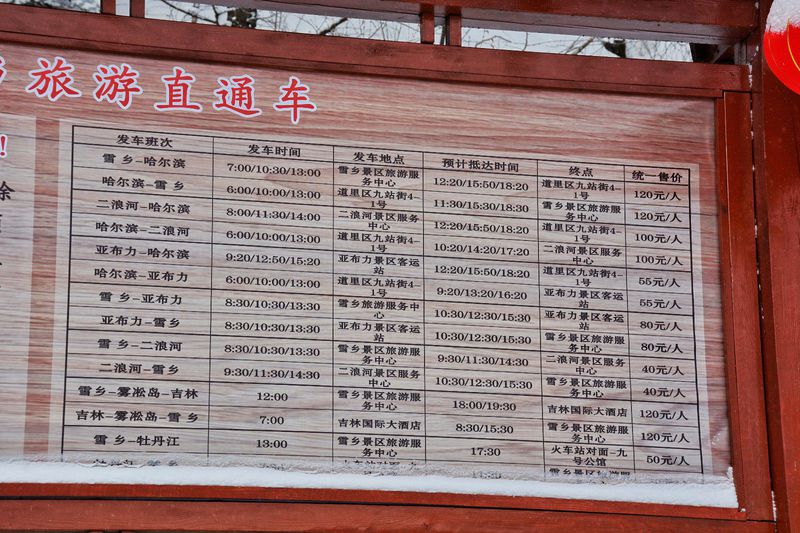 旅游直通车
发车班次 发车时间 发车地点 预计抵达时间 终点 统一售价
雪乡-哈尔滨 7:00/10:30/13:00 雪乡景区旅游服务中心 12:20/15:50/18:20 道里区九站街4-1号 120元/人
哈尔滨-雪乡 6:00/10:00/13:00 道里区九站街4-1号 11:30/15:30/18:30 雪乡景区旅游服务中心 120元/人
二浪河-哈尔滨 8:00/11:30/14:00 二浪河景区服务中心 12:20/15:50/18:20 道里区九站街4-1号 100元/人
哈尔滨-二浪河 6:00/10:00/13:00 道里区九站街4-1号 10:20/14:20/17:20 二浪河景区服务中心 100元/人
亚布力-哈尔滨 9:20/12:50/15:20 亚布力景区客运站 12:20/15:50/18:20 道里区九站街4-1号 55元/人
哈尔滨-亚布力 6:00/10:00/13:00 道里区九站街4-1号 9:20/13:20/16:20 亚布力景区客运站 55元/人
雪乡-亚布力 8:30/10:30/13:30 雪乡旅游服务中心 10:30/12:30/15:30 亚布力景区客运站 80元/人
亚布力-雪乡 8:30/10:30/13:30 亚布力景区客运站 10:30/12:30/15:30 雪乡景区旅游服务中心 80元/人
雪乡-二浪河 8:30/10:30/13:30 雪乡景区旅游服务中心 9:30/11:30/14:30 二浪河景区服务中心 40元/人
二浪河-雪乡 9:30/11:30/14:30 二浪河景区服务中心 10:30/12:30/15:30 雪乡景区旅游服务中心 40元/人
雪乡-雾凇岛-吉林 12:00 雪乡景区旅游服务中心 18:00/19:30 吉林国际大酒店 120元/人
吉林-雾凇岛-雪乡 7:00 吉林国际大酒店 8:30/15:30 雪乡景区旅游服务中心 120元/人
雪乡-牡丹江 13:00 雪乡景区旅游服务中心 17:30 火车站对面-九号公馆 50元/人
火车站对面 雪乡景区旅游服